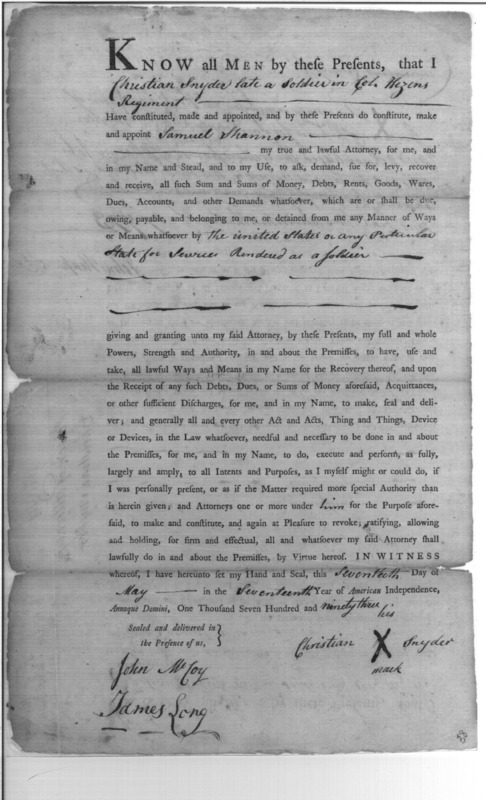 KNOW all MEN by theſe Preſents, that I
Christian Snyder late a Soldier in Col. Hazens
Regiment
Have conſtituted, made and appointed, and by theſe Preſents do conſtitute, make
and appoint Samuel Shannon
my true and lawful Attorney, for me, and
in my Name and Stead, and to my Uſe, to aſk, demand, ſue for, levy, recover
and receive, all ſuch Sum and Sums of Money, Debts, Rents, Goods, Wares,
Dues, Accounts, and other Demands whatſoever, which are or ſhall be due,
owing, payable, and belonging to me, or detained from me any Manner of Ways
or Means whatſoever by the united States or any Perticular
State for Services Rendered as a Soldier
giving and granting unto my ſaid Attorney, by theſe Preſents, my full and whole
Powers, Strength and Authority, in and about the Premiſſes, to have, uſe and
take, all lawful Ways and Means in my Name for the Recovery thereof, and upon
the Receipt of any ſuch Debts, Dues, or Sums of Money aforeſaid, Acquittances,
or other ſufficient Diſcharges, for me, and in my Name, to make, ſeal and deli-
ver; and generally all and every other Act and Acts, Thing and Things, Device
or Devices, in the Law whatſoever, needful and neceſſary to be done in and about
the Premiſſes, for me, and in my Name, to do, execute and perform, as fully,
largely and amply, to all Intents and Purpoſes, as I myſelf might or could do, if
I was perſonally preſent, or as if the Matter required more ſpecial Authority than
is herein given; and Attorneys one or more under him for the Purpoſe afore-
ſaid, to make and conſtitute, and again at Pleaſure to revoke; ratifying, allowing
and holding, for firm and effectual, all and whatſoever my ſaid Attorney ſhall
lawfully do in and about the Premiſſes, by Virtue hereof. IN WITNESS
whereof, I have hereunto ſet my Hand and Seal, this Seventeeth Day of
May in the Seventeenth Year of American Independence,
Annoque Domini, One Thouſand Seven Hundred and ninety three
his
Sealed and delivered in
the Preſence of us,
Christian X Snyder
mark
John McCoy
James Long